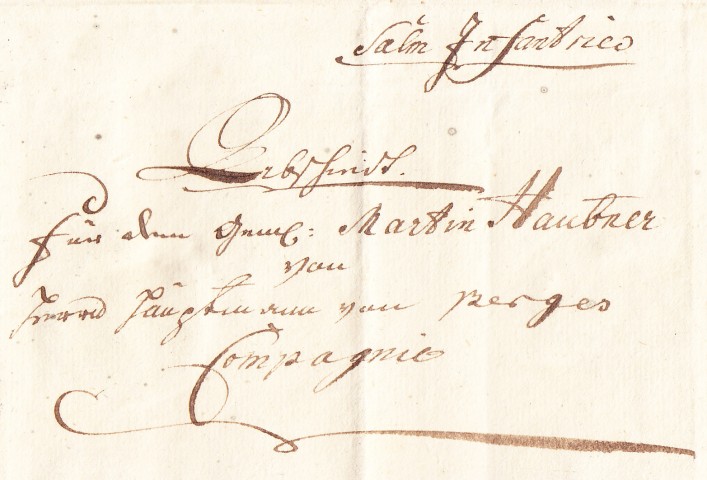 Salm Infanterie
Abschied.
Für dem Gem: Martin Haubner
von
Herrn Hauptmann von Perges
Compagnie